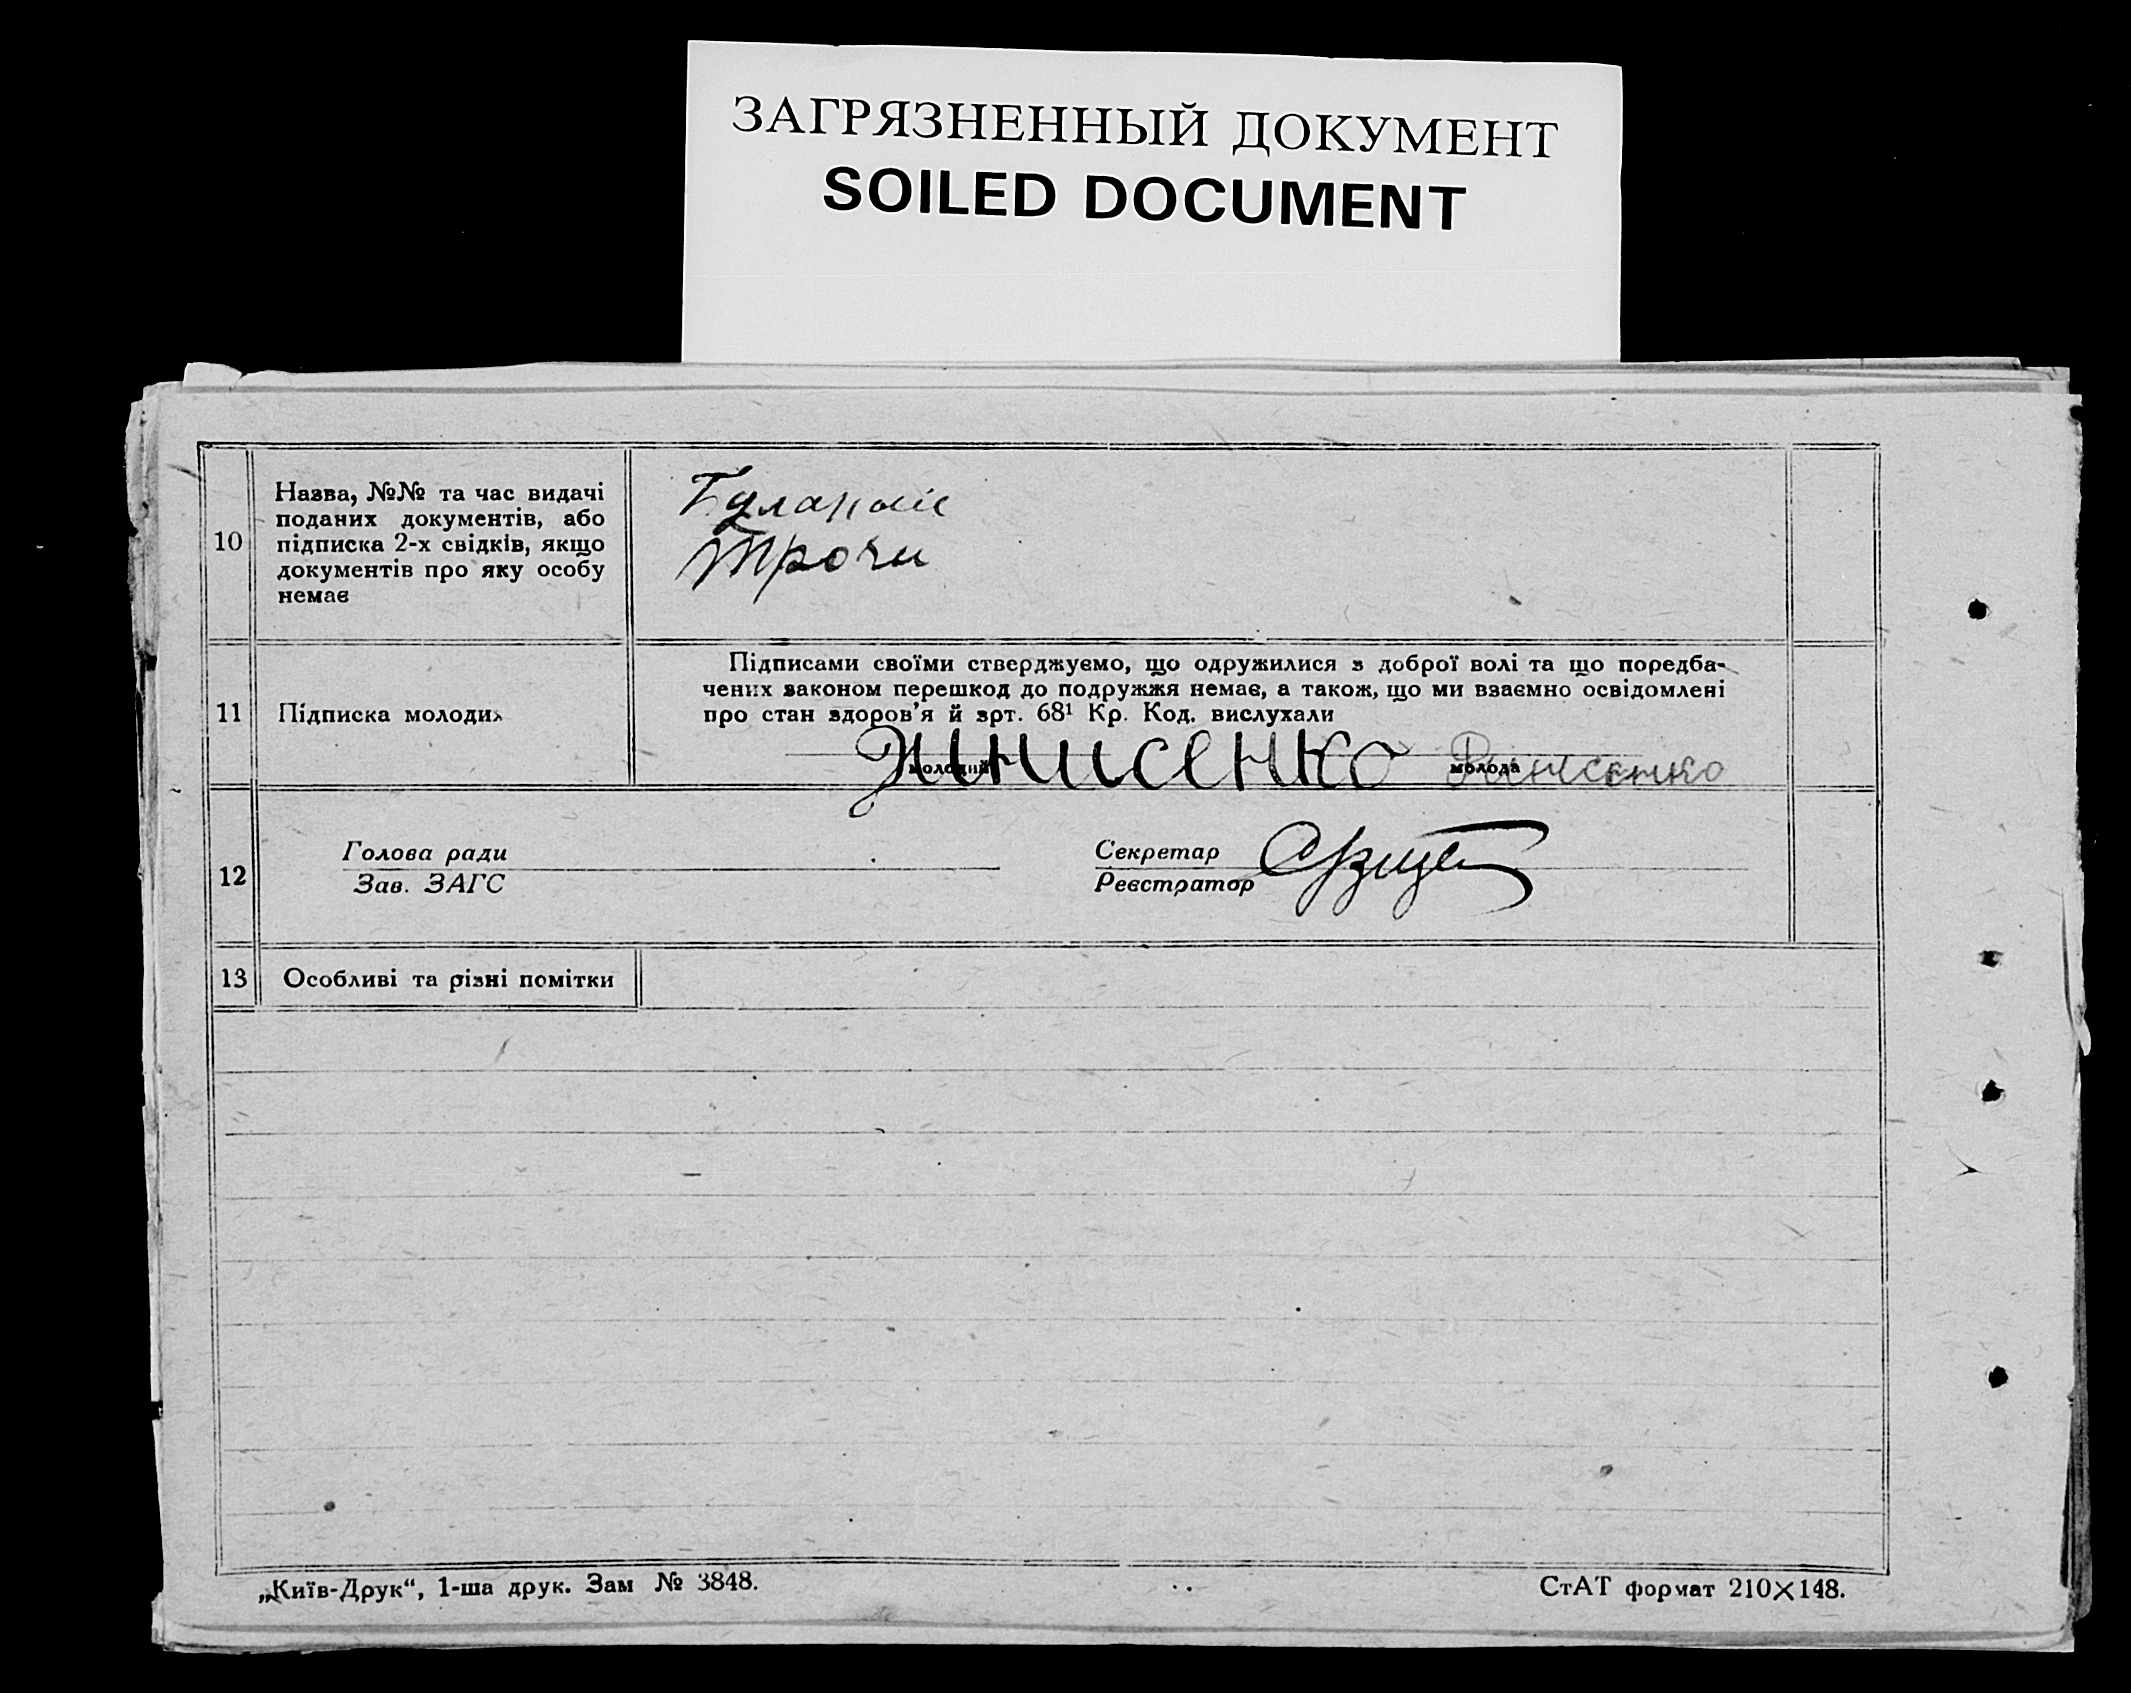 ЗАГРЯЗНЕННЫЙ ДОКУМЕНТ
SOILED DOCUMENT
10
Назва, №№ та час видачі
поданих документів, або
підписка 2-х свідків, якщо
документів про яку особу
немає
11
Підписка молодих
Підписами своїми стверджуємо, що одружилися з доброї волі та що поредба-
чених законом перешкод до подружжя немає, а також, що ми взаємно освідомлені
про стан здоров'я й арт. 68¹ Кр. Код. вислухали
молодий
молода
12
Голова ради
Зав. ЗАГС
Секретар
Реєстратор
13
Особливі та різні помітки
„Київ-Друк“, 1-ша друк. Зам № 3848.
СтАТ формат 210×148.